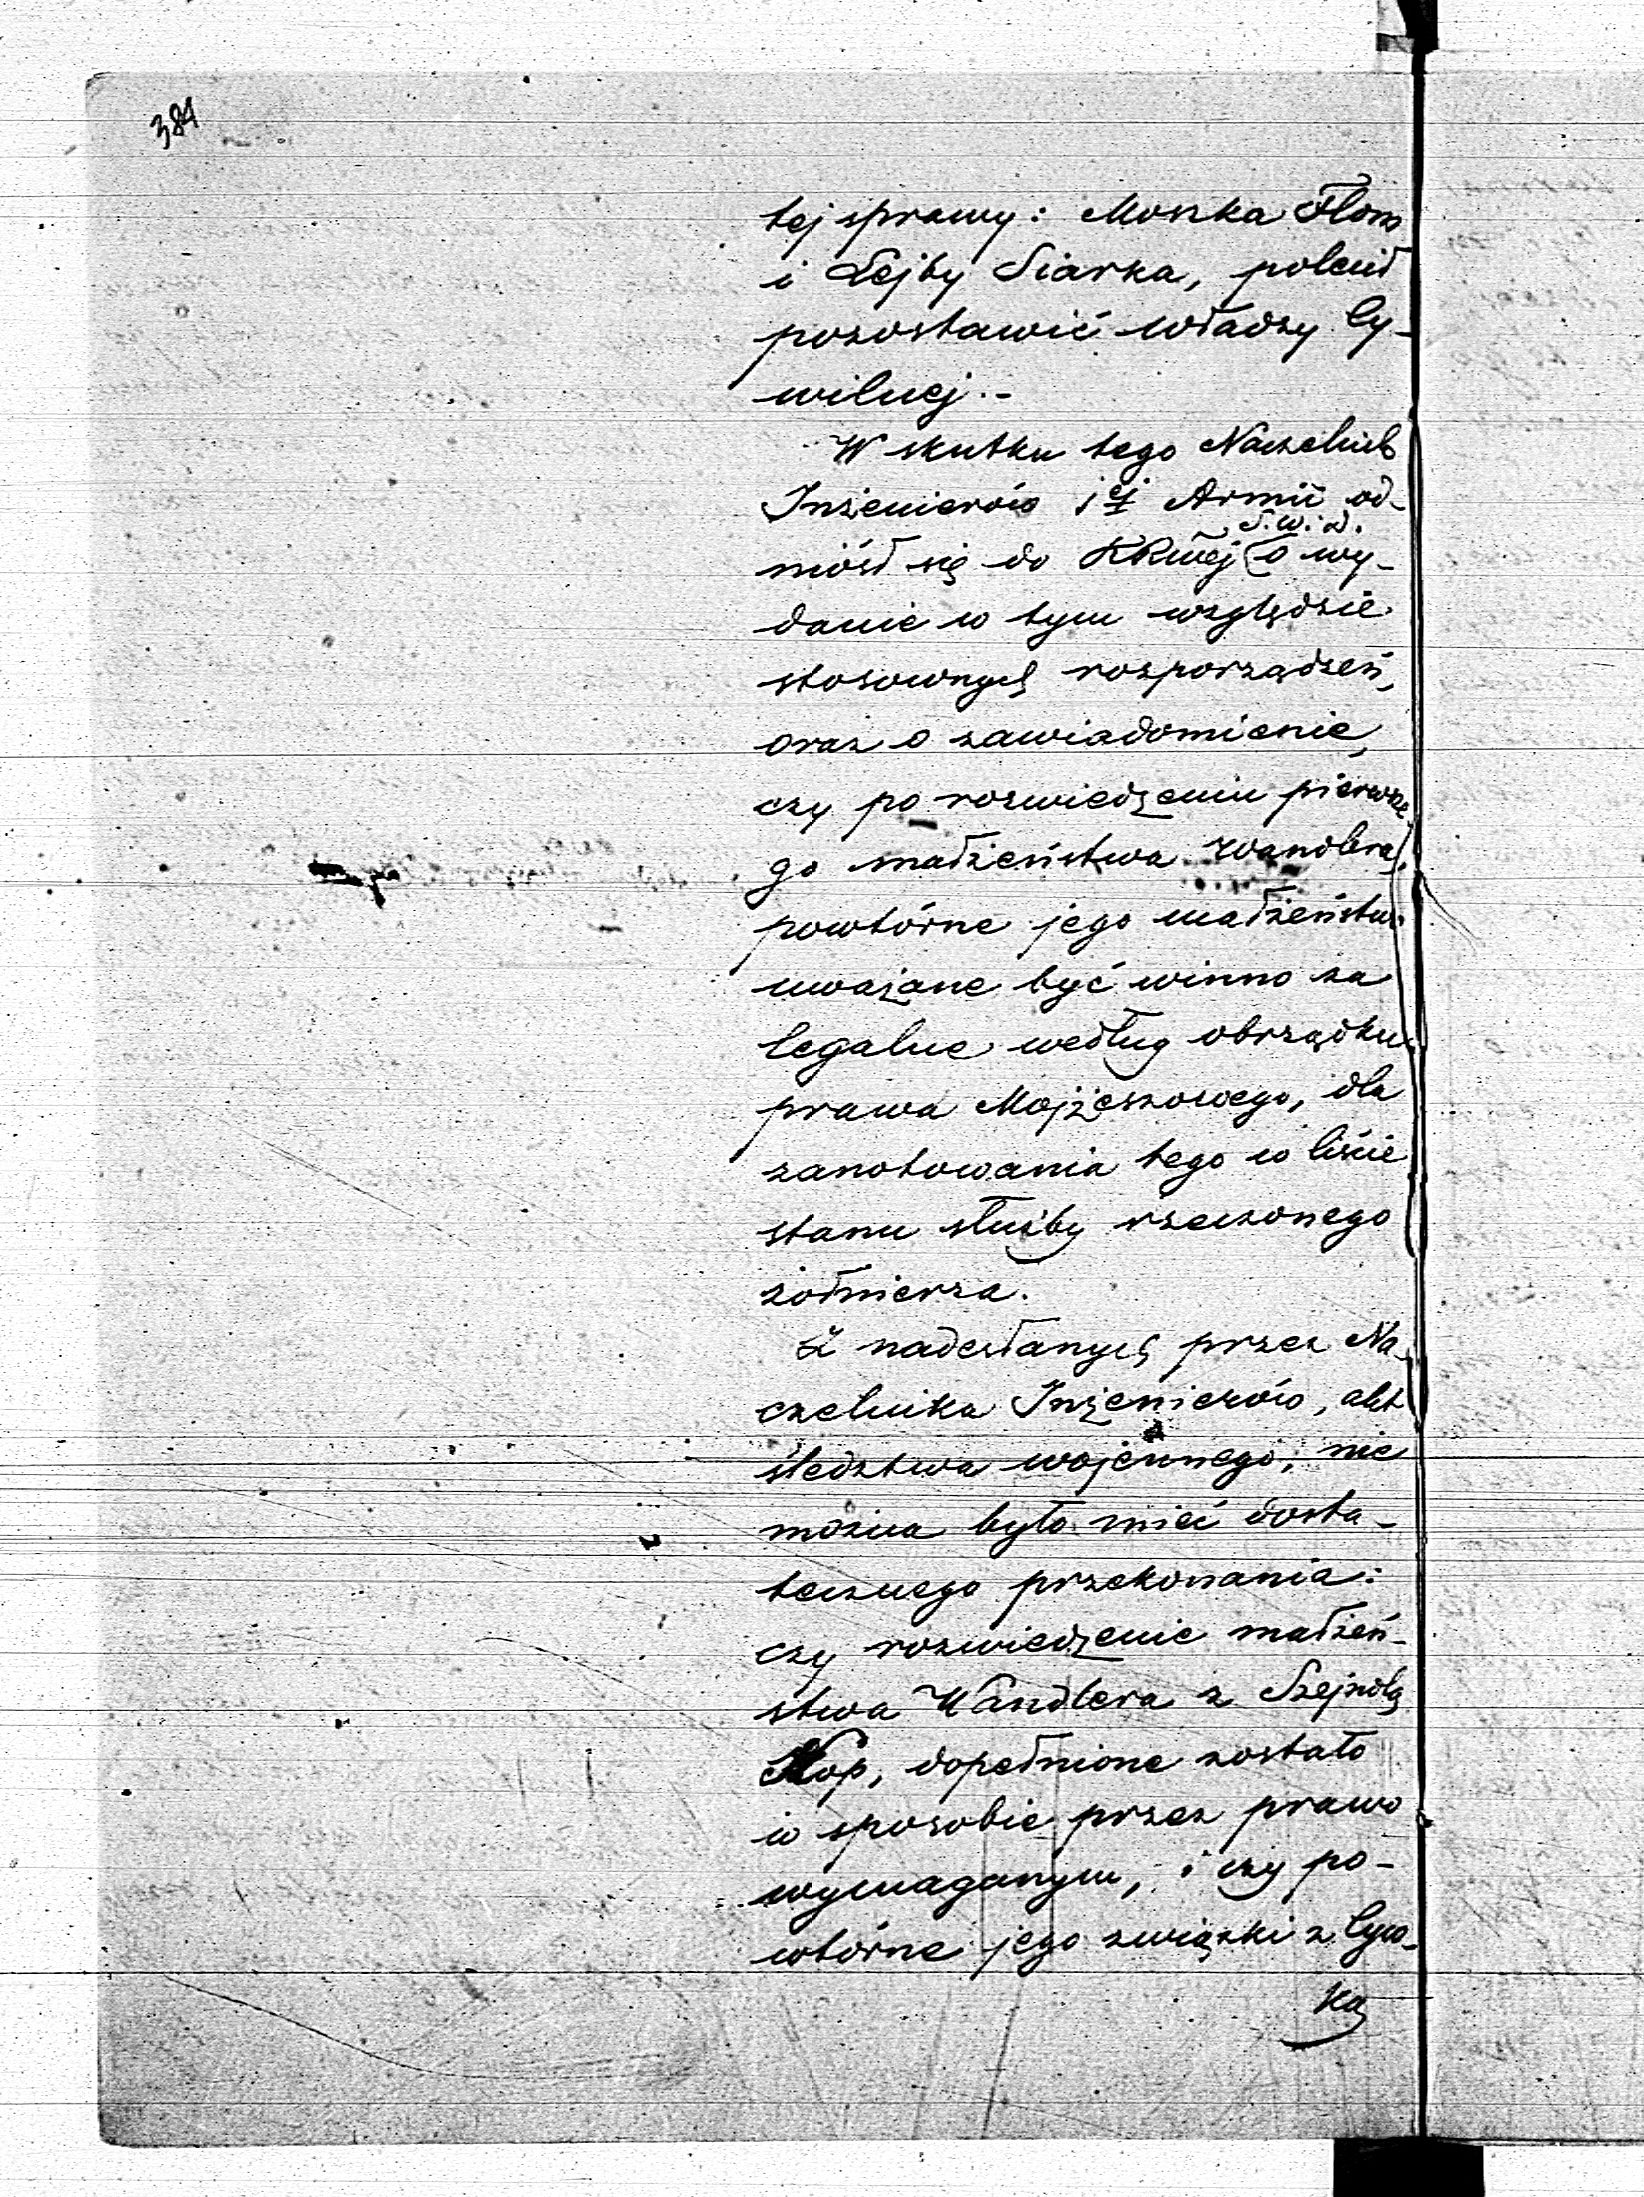 384
tej sprawy: Moszka Flom
i Lejby Siarka, polecił
pozostawić władzy Cy-
wilnej.-
W skutku tego Naczelnik
Inżenierów 1ej Armii od-
S.W.i D.
niósł się do KRwej o wy-
danie w tym względzie
stosownych rozporządzeń,
oraz o zawiadomienie,
czy po rozwiedzeniu pierwsze
go małżeństwa Wandlera,
powtórne jego małżeństwo
uważane być winno za
legalne według obrządku
prawa Mojżeszowego, dla
zanotowania tego w liście
stanu służby rzeczonego
żołnierza.
Z nadesłanych przez Na
czelnika Inżenierów, akt
śledztwa wojennego, nie
można było mieć dosta-
tecznego przekonania:
czy rozwiedzenie małżeń-
stwa Wandlera z Szejndlą
Kop, dopełnione zostało
w sposobie przez prawo
wymaganym, i czy po-
wtórne jego związki z Cyw-
ką